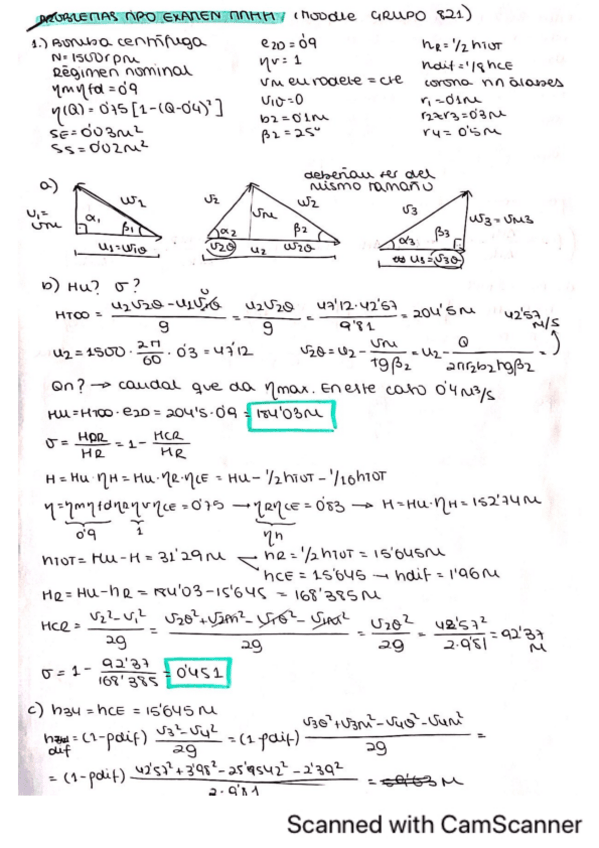 PROBLEMAS TIPO EXAMEN MMHH (MOODLE GRUPO 821)
1.) Bomba centrífuga
N=1500rpm
Régimen nominal
ηmηfd=0'9
η(Q)=0'75[1-(Q-0'4)²]
SE=0'03m²
SS=0'02m²
e20=0'9
ηv=1
Vm en rodete=cte
V1θ=0
b2=0'1m
β2=25º
hR=1/2 hTOT
hdif=1/8 hCE
corona no álabes
r1=0'1m
r2≈r3=0'3m
r4=0'5m
a)
deberían ser del
mismo tamaño
b) Hu? σ?
HT∞ = (u2V2θ-u1V1θ)/g = u2V2θ/g = 47'12·42'57/9'81 = 204'5m
42'57 m/s
u2=1500·2π/60·0'3=47'12
V2θ=u2-Vm/tgβ2=u2-Q/(2πr2b2tgβ2)=
Qn? → caudal que da ηmax. En este caso 0'4m³/s
Hu=HT∞·e20=204'5·0'9=184'03m
σ=HPR/HR=1-HCR/HR
H=Hu·ηH=Hu·ηR·ηCE=Hu-1/2hTOT-1/10hTOT
ηRηCE=0'83 → H=Hu·ηH=152'74m
0'9
1
ηh
hTOT=Hu-H=31'29m
hR=1/2hTOT=15'645m
hCE=15'645 → hdif=1'96m
HR=Hu-hR=184'03-15'645=168'385m
HCR=(V2²-V1²)/2g=(V2θ²+V2m²-V1θ²-V1m²)/2g=V2θ²/2g=42'57²/2·9'81=92'37m
σ=1-92'37/168'385=0'451
c) h34=hCE=15'645m
dif=(1-ρdif)(V3²-V4²)/2g=(1-ρdif)(V3θ²+V3m²-V4θ²-V4m²)/2g=
=(1-ρdif)(42'57²+3'98²-25'542²-2'39²)/2·9'81=
Scanned with CamScanner